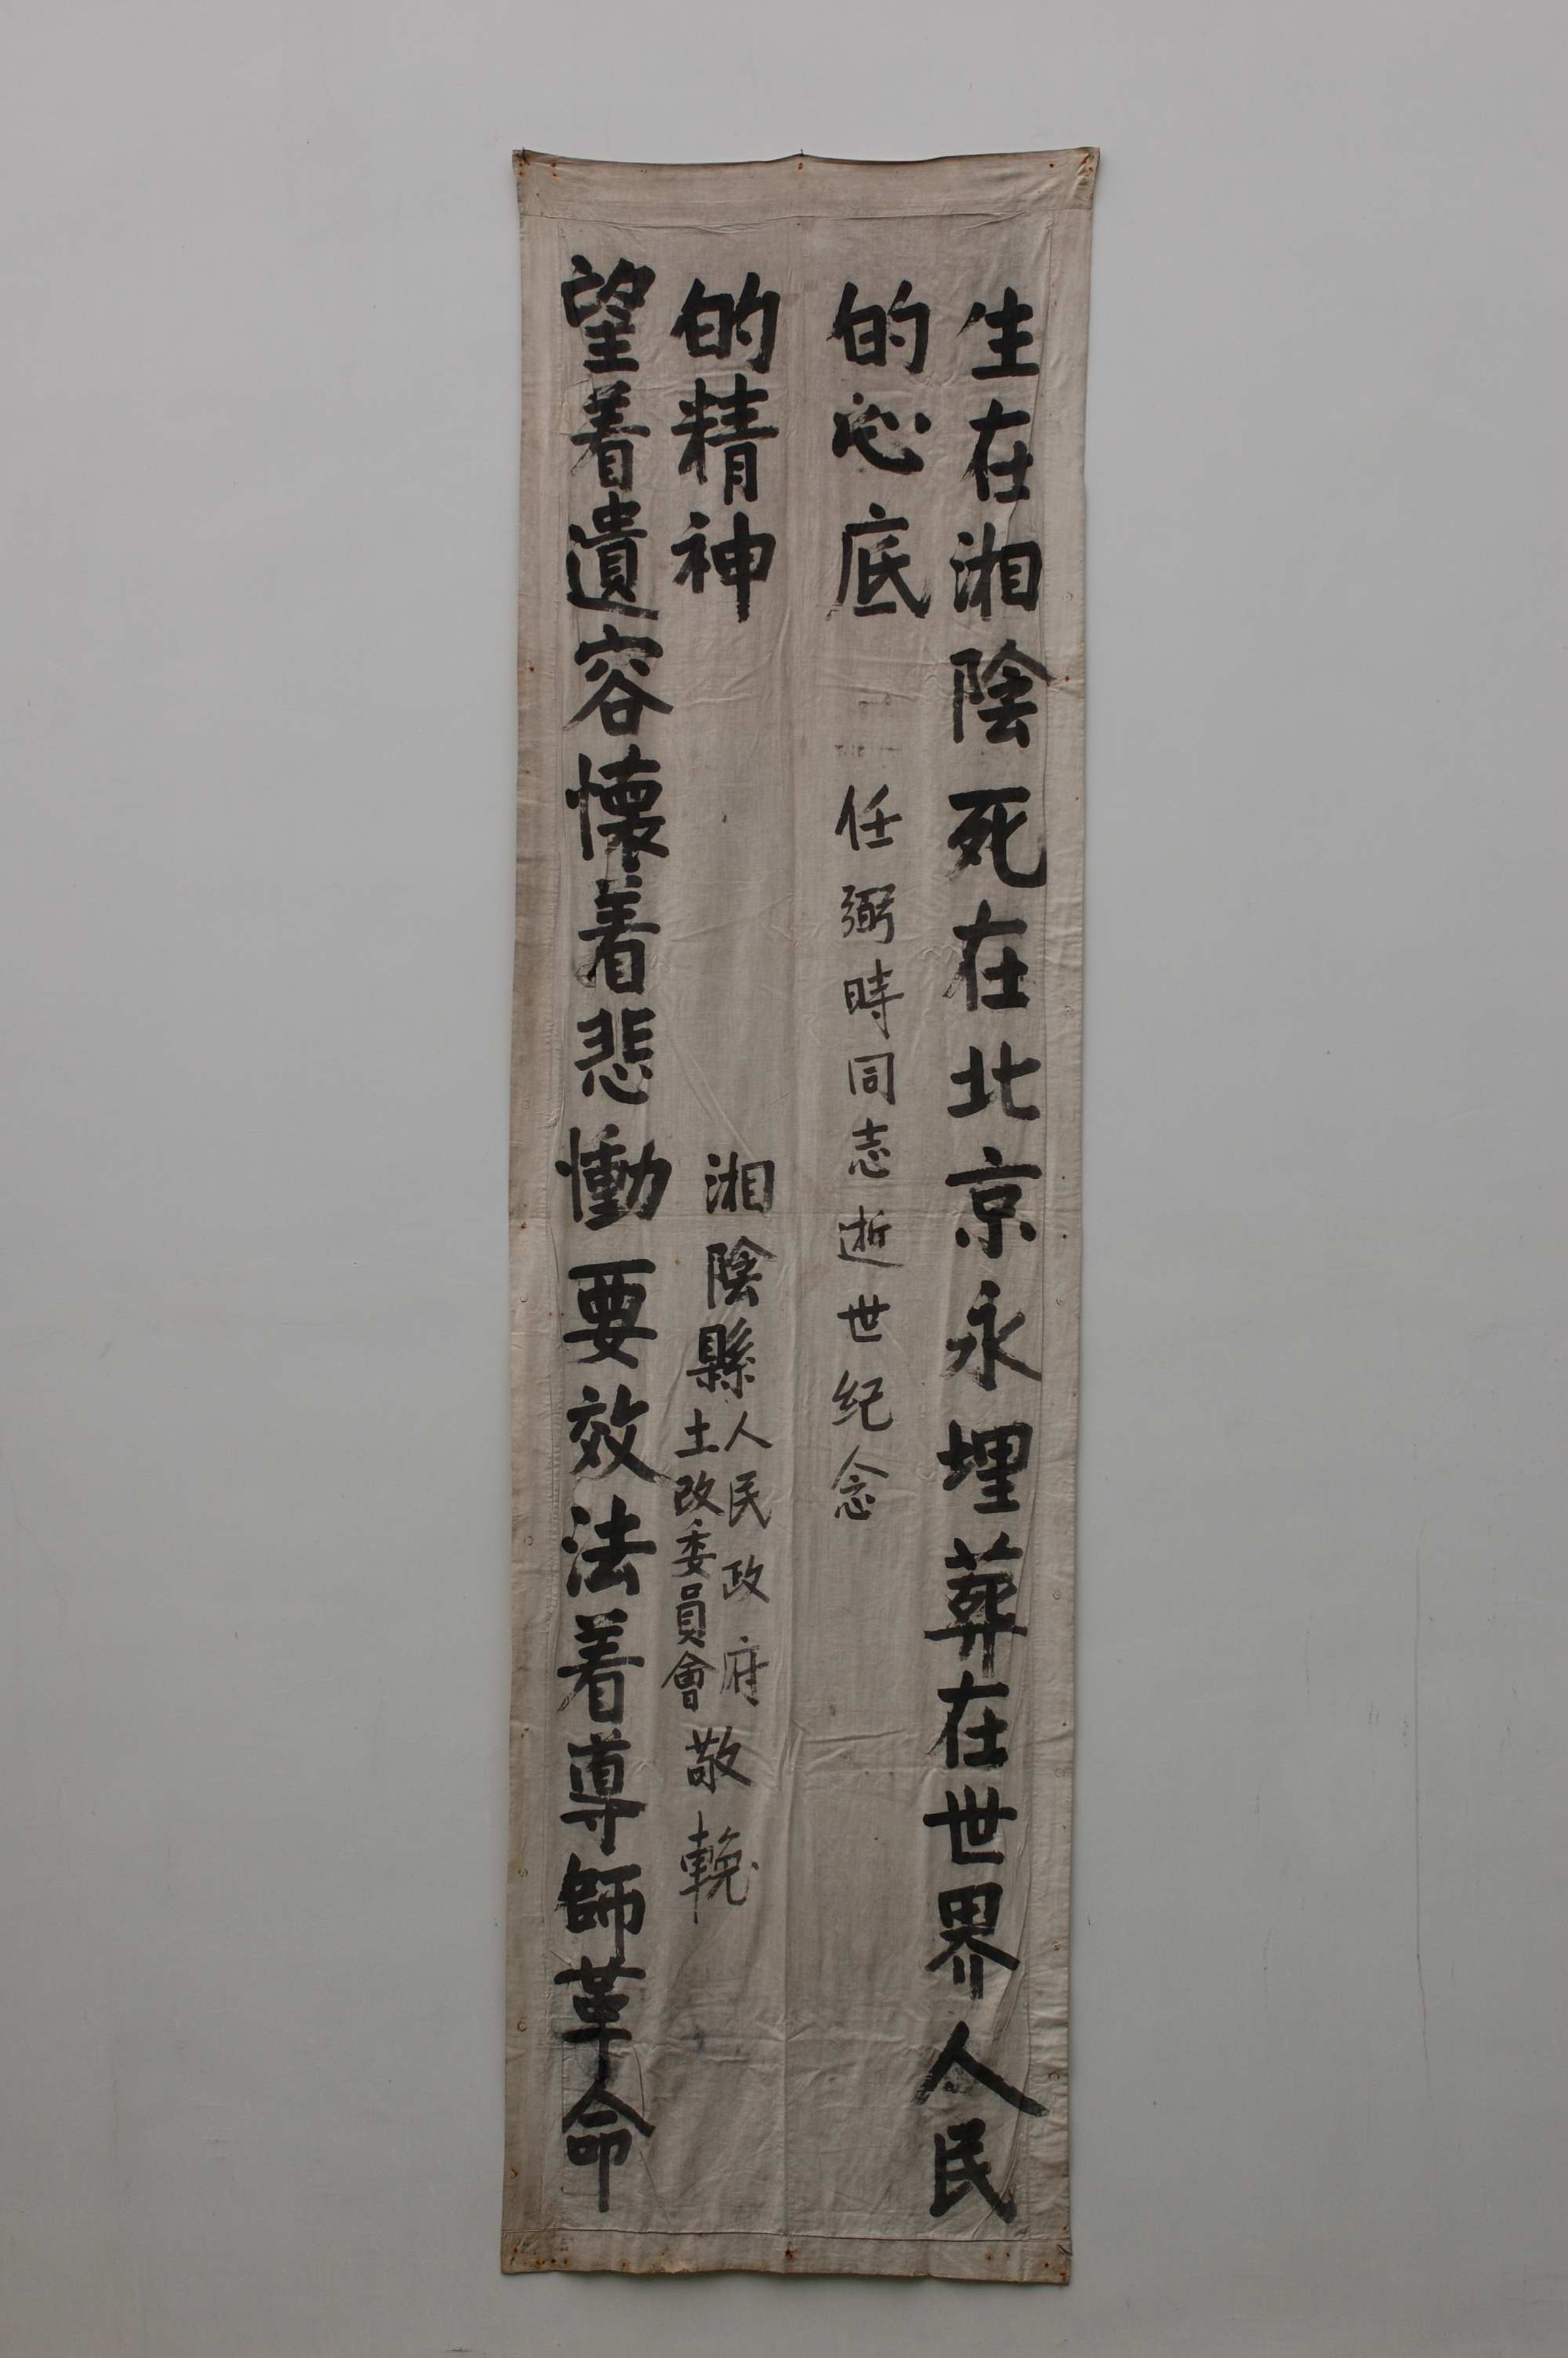 生在湘陰死在北京永埋葬在世界人民
的心底
任弼時同志逝世纪念
望着遺容懷着悲慟要效法着導師革命
的精神
湘陰縣
人民政府
土改委員會
敬輓